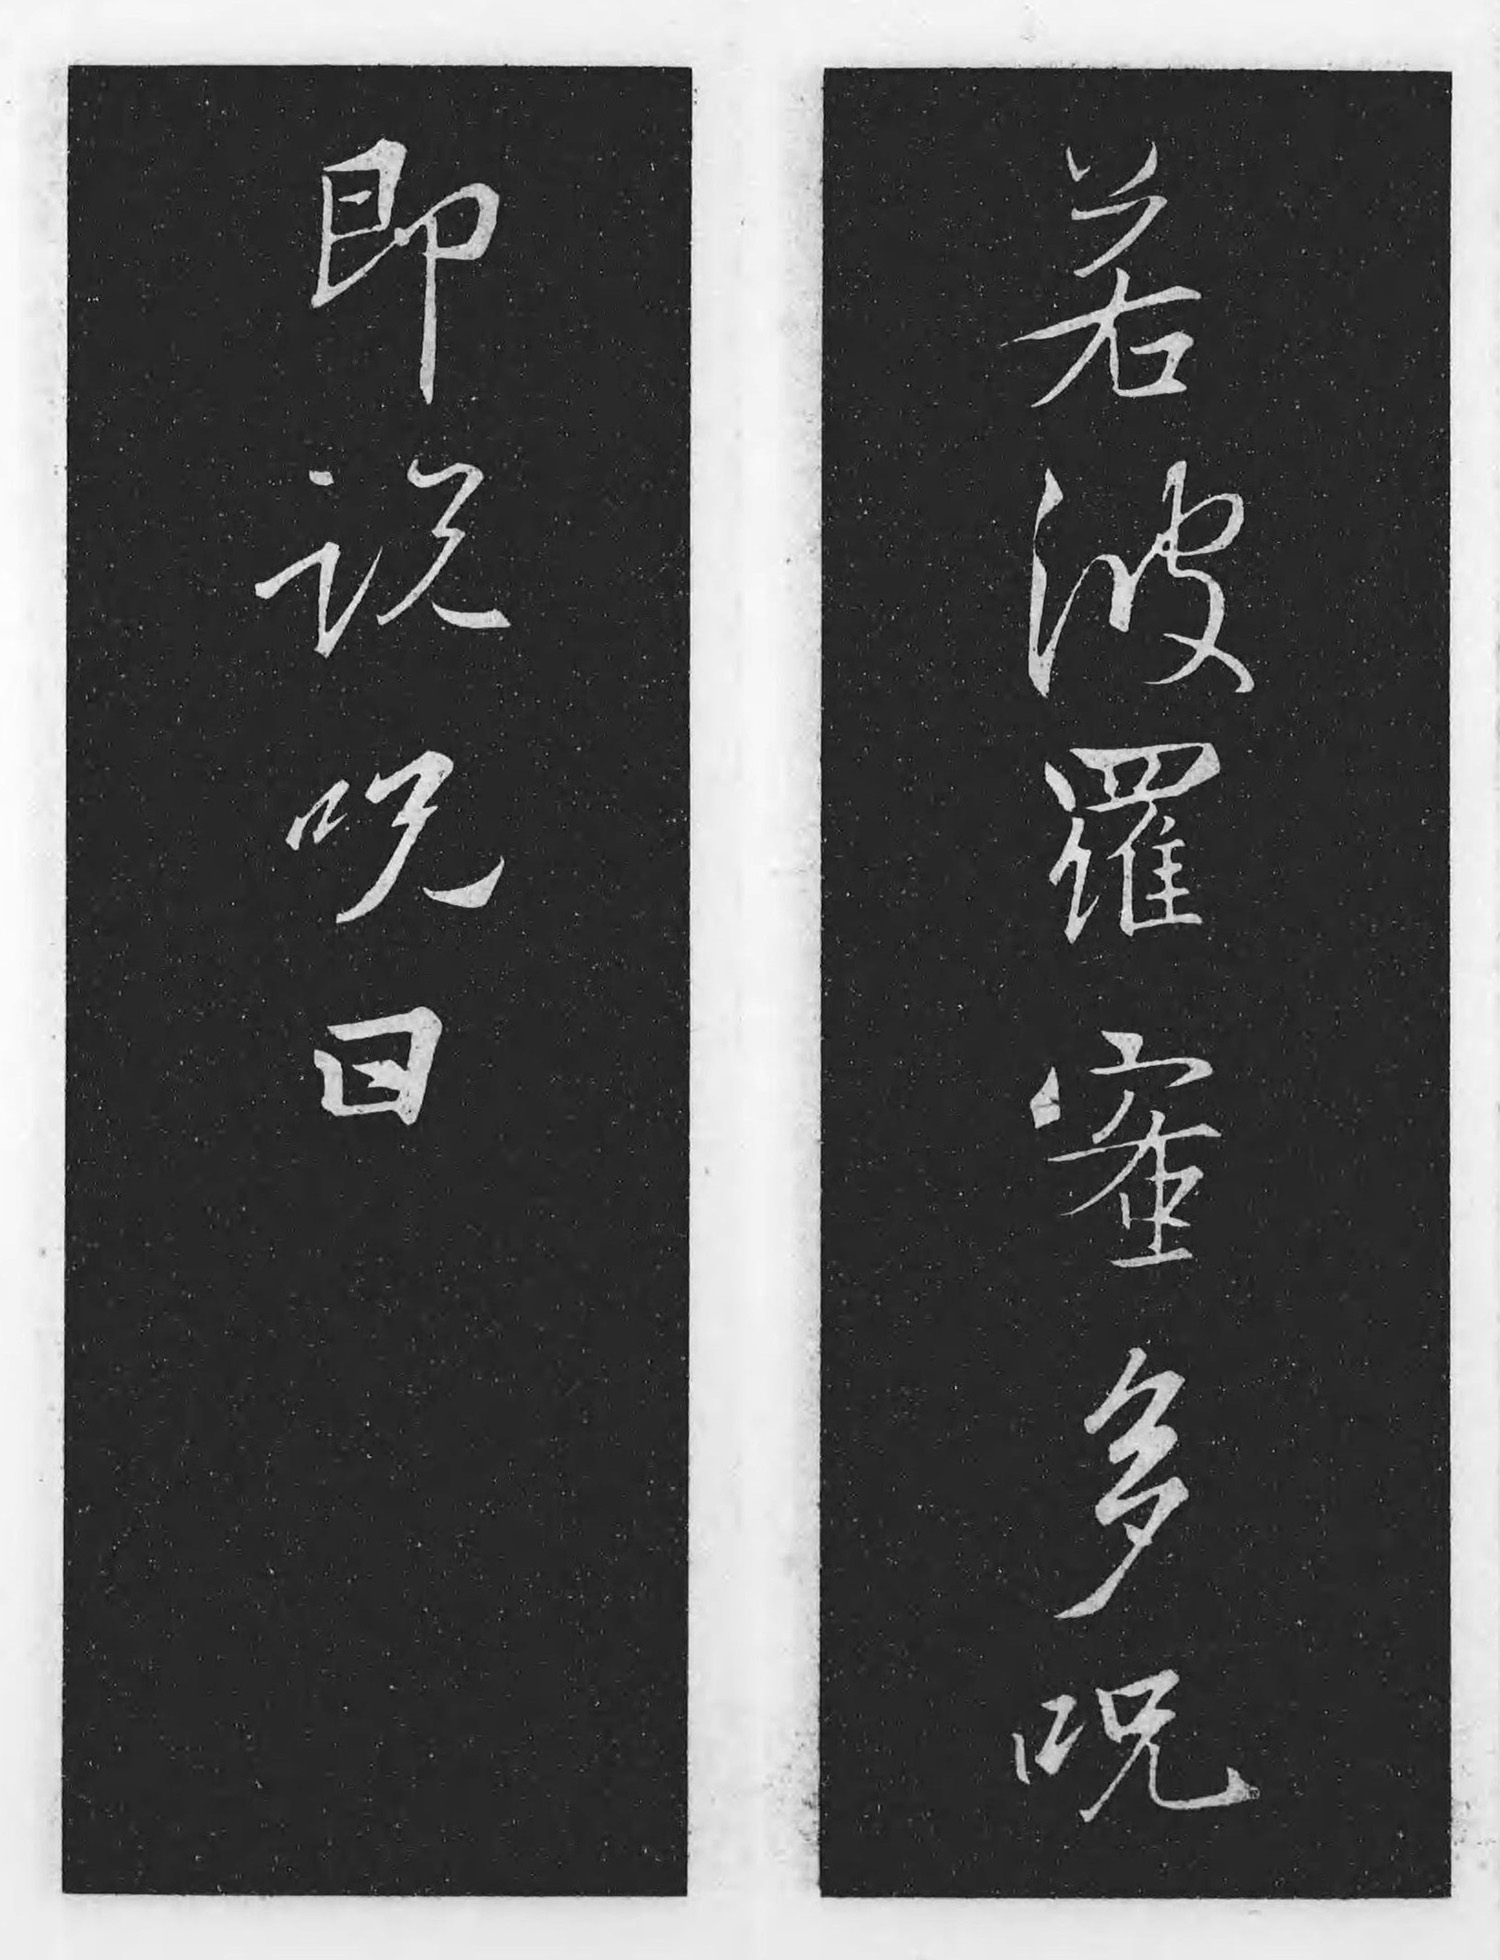 若波羅蜜多呪
即説呪曰